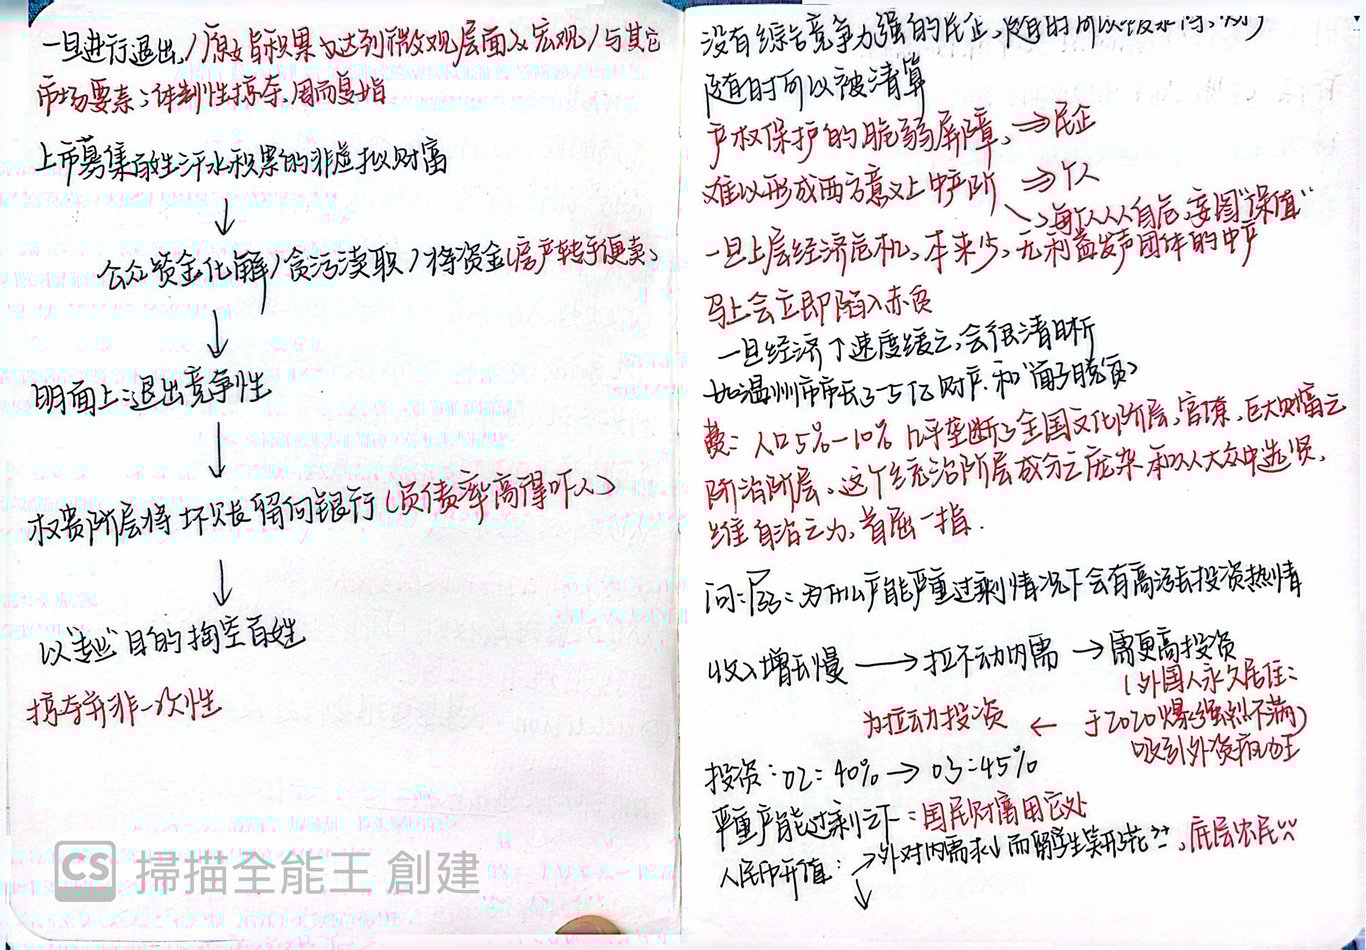 一旦进行退出,/原始积累已达到微观层面及宏观/与其它
市场要素:体制性掠夺,周而复始
上市募集百姓汗水积累的非虚拟财富
↓
公众资金化解/贪污渎职/将资金(房产转手便卖)
↓
明面上:退出竞争性
↓
权贵阶层将坏账留何银行(负债率高得吓人)
↓
以达到目的掏空百姓
掠夺并非一次性
没有综合竞争力强的民企,随时可以
随时可以被清算
产权保护的脆弱屏障,⇒民企
难以形成西方意义上中产阶 ⇒个人
每个人人自危,妄图“保值”
一旦上层经济危机,本来少,无利益发声团体的中产
马上会立即陷入赤贫
一旦经济下速度缓之,会很清晰
如温州市市长3-5亿财产.和
人口5%-10%几乎垄断了全国文化阶层,官僚,巨大财富之
阶治阶层,这个统治阶层成分之庞杂和从人大众中选贤,
维自治之为,首屈一指.
问:为什么产能严重过剩情况下会有高涨投资热情
收入增长慢→拉不动内需→需更高投资
(外国人永久居住:
为拉动投资 ← 于2020爆强烈不满)
吸引外资疯狂
投资:02:40%→03:45%
严重产能过剩之下:国民财富用它处
人民币升值:→外对内需求↓而留学生笑开花,底层农民
↓
CS 掃描全能王 創建